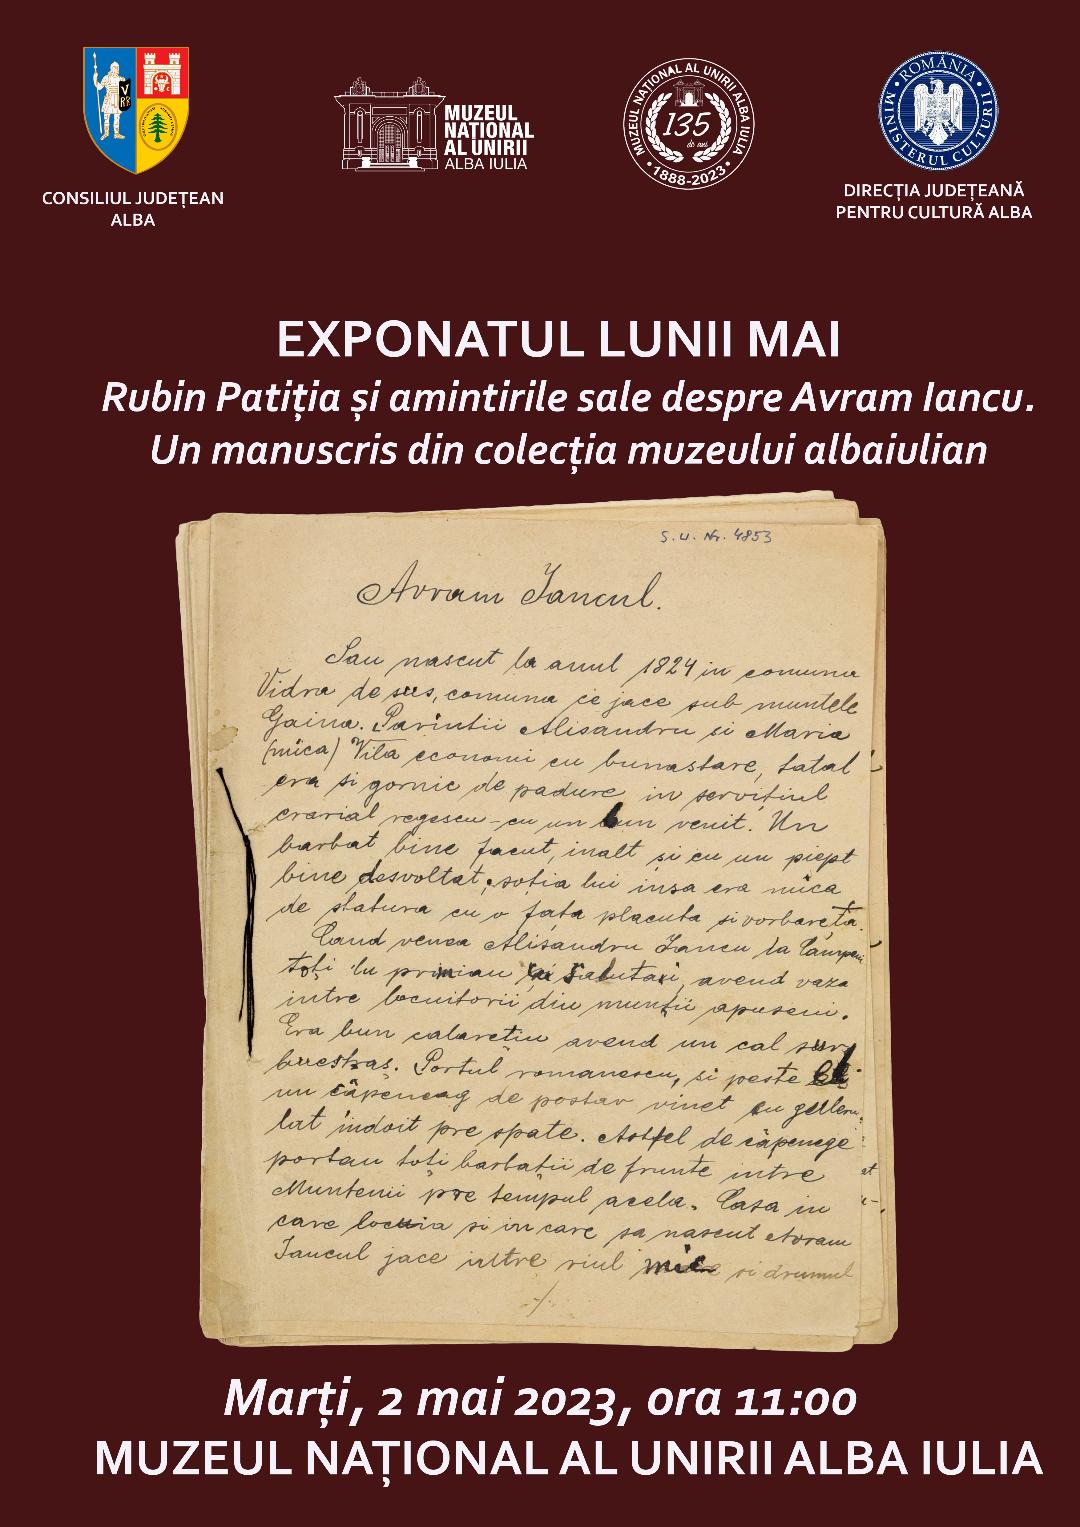 CONSILIUL JUDEȚEAN
ALBA
MUZEUL
NAȚIONAL
AL UNIRII
ALBA IULIA
MUZEUL NAȚIONAL AL UNIRII ALBA IULIA
135
de ani
1888-2023
ROMÂNIA
MINISTERUL CULTURII
DIRECȚIA JUDEȚEANĂ
PENTRU CULTURĂ ALBA
EXPONATUL LUNII MAI
Rubin Patiția și amintirile sale despre Avram Iancu.
Un manuscris din colecția muzeului albaiulian
S.U. Nr. 4853
Avram Iancul.
Sau nascut la anul 1824 in comuna
Vidra de sus, comuna ce jace sub muntele
Gaina. Parintii Alisandru si Maria
(mica) Vila economi cu bunastare, tatal
era si gornic de padure in servițiul
erarial regescu-cu un bun venit. Un
barbat bine facut, inalt și cu un piept
bine desvoltat, soția lui insa era mica
de statura cu o fața placuta si vorbareța.
Cand venea Alisandru Iancu la Câmpeni
toți 'lu primiau și salutari, avend vaza
intre locuitorii din munții apuseni.
Era bun calarețiu avend un cal sur
buestraș. Portul romanescu, si peste
un căpeneag de postav vinet cu
lat indoit pre spate. Astfel de căpenege
portau toți barbații de frunte intre
Muntenii pre tempul acela. Casa in
care locuia si in care sa nascut Avram
Iancul jace intre riul mic si drumul
Marți, 2 mai 2023, ora 11:00
MUZEUL NAȚIONAL AL UNIRII ALBA IULIA